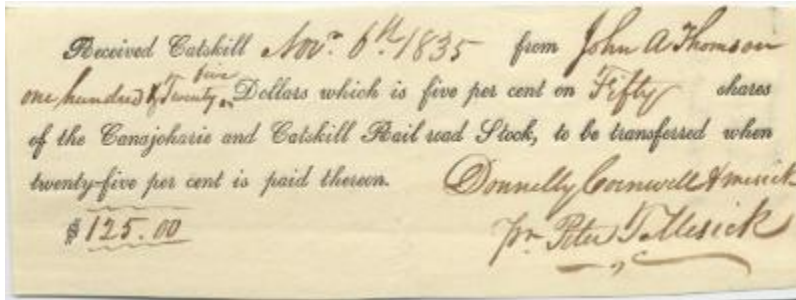 Received Catskill Nov.r 6th. 1835 from John A Thomson
one hundred & Twenty five Dollars which is five per cent on Fifty shares
of the Canajoharie and Catskill Rail road Stock, to be transferred when
twenty-five per cent is paid thereon. Donnelly Cornwell & mesick
$125.00 pr. Peter T Mesick